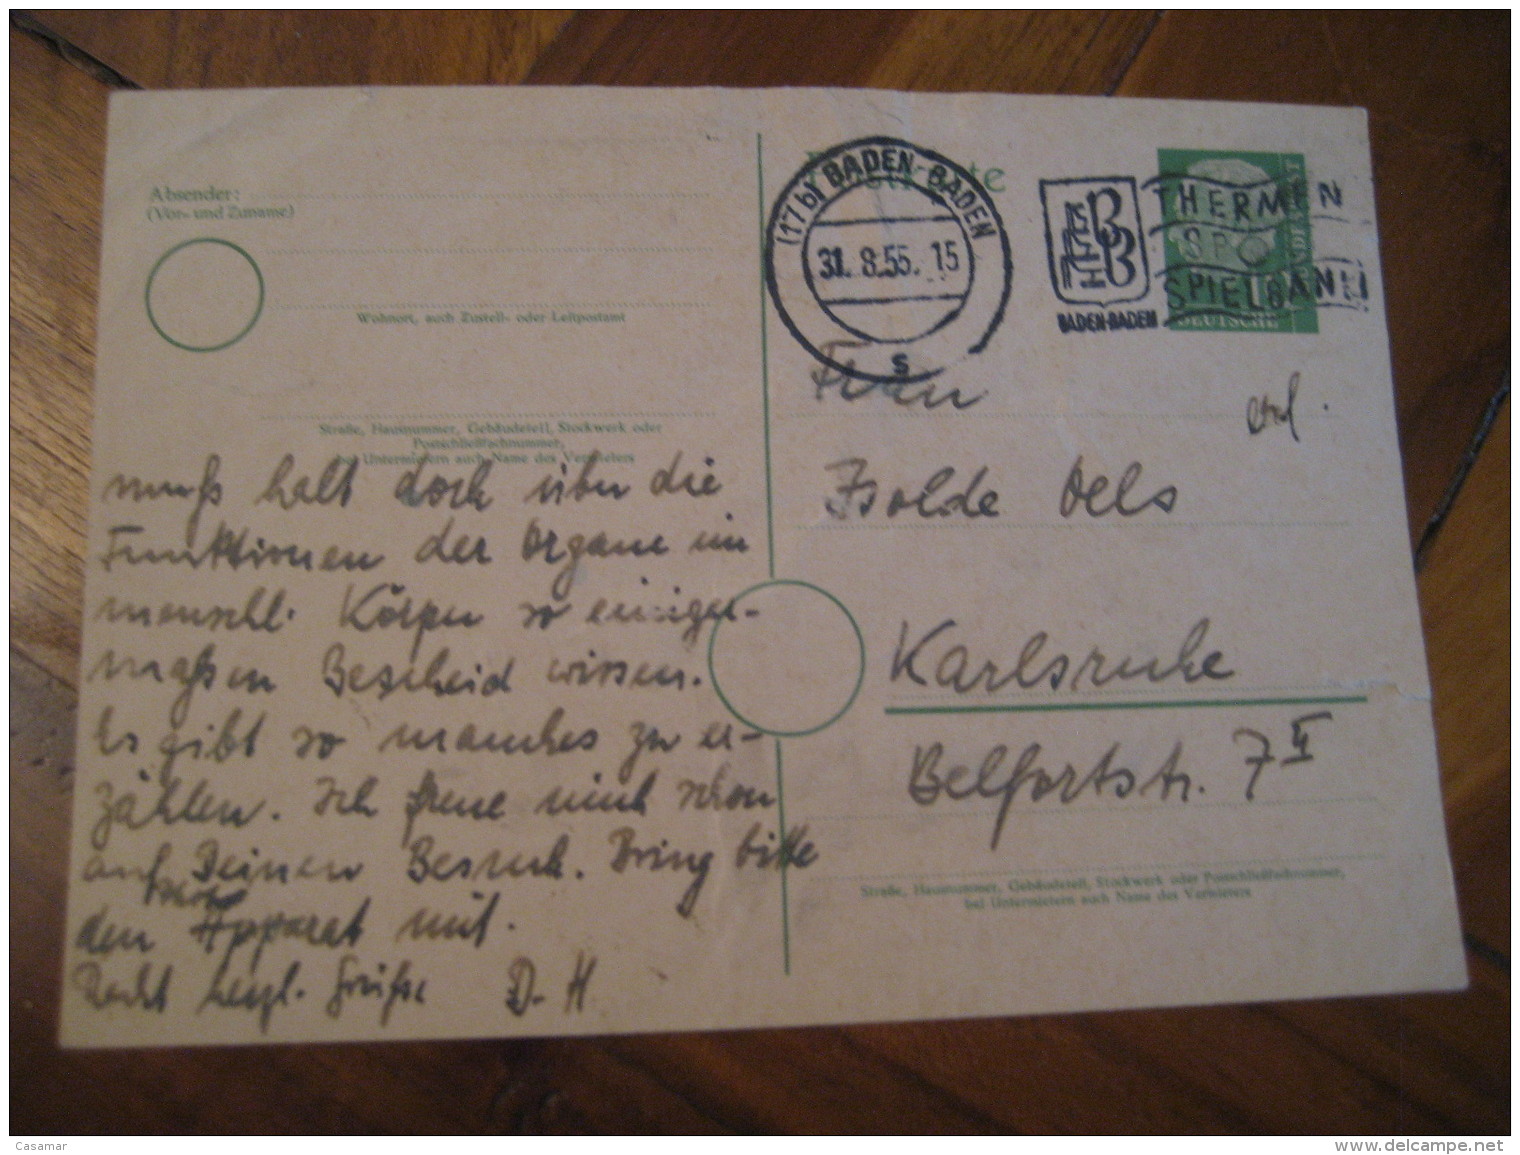 Absender:
(Vor- und Zuname)
Wohnort, auch Zustell- oder Leitpostamt
Straße, Hausnummer, Gebäudeteil, Stockwerk oder
Postschließfachnummer,
bei Untermietern auch Name des Vermieters
muß halt doch über die
Funktionen der Organe im
menschl. Körper so einiger-
maßen Bescheid wissen.
Es gibt so manches zu er-
zählen. Ich freue mich schon
auf Deinen Besuch. Bring bitte
den Photo Apparat mit.
Recht herzl. Grüße D. H
(17b) BADEN-BADEN
31. 8.55. 15
s
BADEN-BADEN
THERMEN
SPO
SPIELBANK
DEUTSCHE
Frau
Isolde Oels
Karlsruhe
Belfortstr. 7 II
Straße, Hausnummer, Gebäudeteil, Stockwerk oder Postschließfachnummer,
bei Untermietern auch Name des Vermieters
Casamar
www.delcampe.net